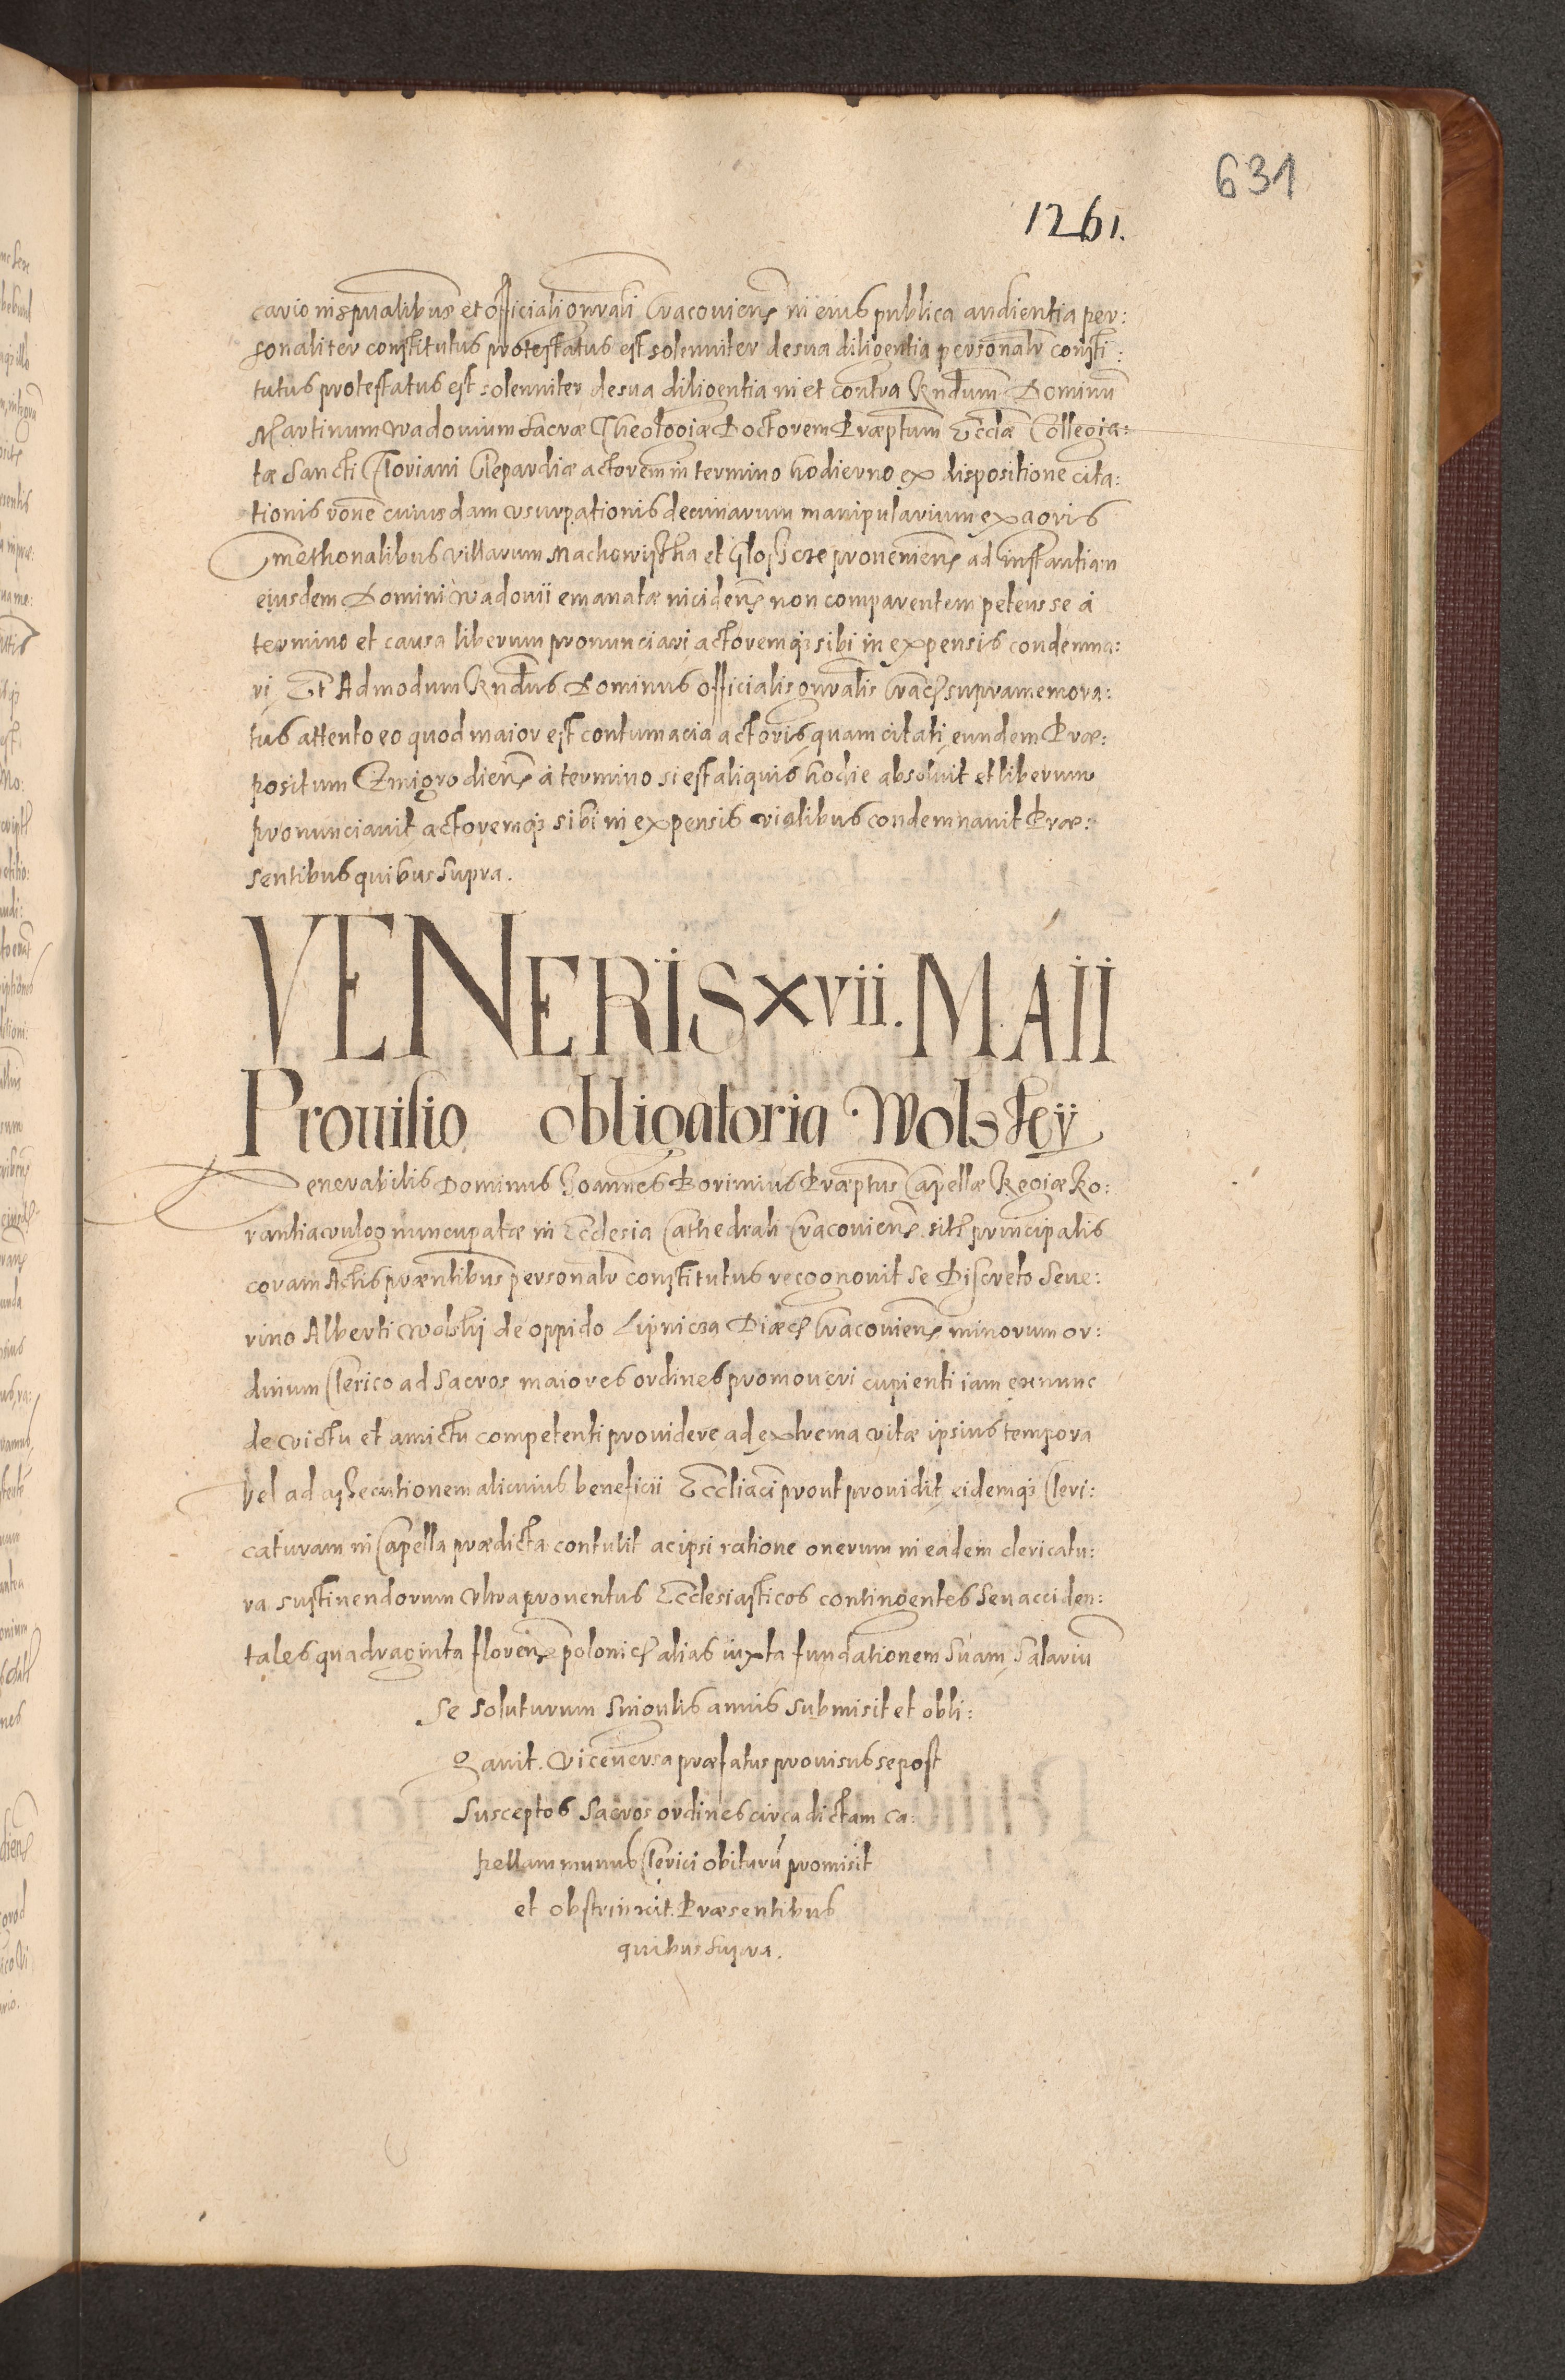 631
1261.
cario in spualibus et officiali gnrali Cracoviens in eius publica audientia per:
sonaliter constitutus protestatus est solenniter de sua diligentia personalr consti:
tutus protestatus est solenniter de sua diligentia in et contra Rndum Dominu
Martinum Wadovium Sacræ Theologiæ Doctorem Præptum Eccliæ Collegia:
tæ Sancti Floriani Clepardiæ actorem in termino hodierno ex dispositione cita:
tionis rone cuiusdam usurpationis decimarum manipularium ex agris
Cmethonalibus villarum Machowistha et provenien ad instantiam
eiusdem Domini Wadovii emanatæ incidens non comparentem petens se à
termino et causa liberum pronunciari actoremq3 sibi in expensis condemna:
ri Et Admodum Rndus Dominus officialis gnralis Crac supramemora:
tus attento eo quod maior est contumacia actoris quam citati eundem Præ:
positum Zmigrodiens à termino si est aliquis hodie absolvit et liberum
pronunciavit actoremq3 sibi in expensis vialibus condemnavit Præ:
sentibus quibus Supra.
VENERIS xvii. MAII
Provisio obligatoria Wolskÿ
Venerabilis Dominus Joannes Borimius Præptus Capellæ Regiæ Ro:
rantia vulgo nuncupatæ in Ecclesia Cathedrali Cracoviens. principalis
coram Actis præntibus personalr constitutus recognovit se Discreto Seve:
rino Alberti Wolskj de oppido Lipnicza Diæc Cracoviens minorum or:
dinum Clerico ad Sacros maiores ordines promoveri cupienti iam ex nunc
de victu et amictu competenti providere ad extrema vitæ ipsius tempora
Vel ad assecutionem alicuius beneficii Eccliaci prout providit eidemq3 Cleri:
caturam in Capella prædicta contulit ac ipsi ratione onerum in eadem clericatu:
ra sustinendorum Ultra proventus Ecclesiasticos contingentes Seu acciden:
tales quadraginta florens polonic alias iuxta fundationem Suam Salariu
Se Soluturum Singulis annis Submisit et obli:
gavit. Vice versa præfatus provisus se post
Susceptos Sacros ordines circa dictam Ca:
pellam munus Clerici obiturũ promisit
et obstrinxit. Præsentibus
quibus Supra.